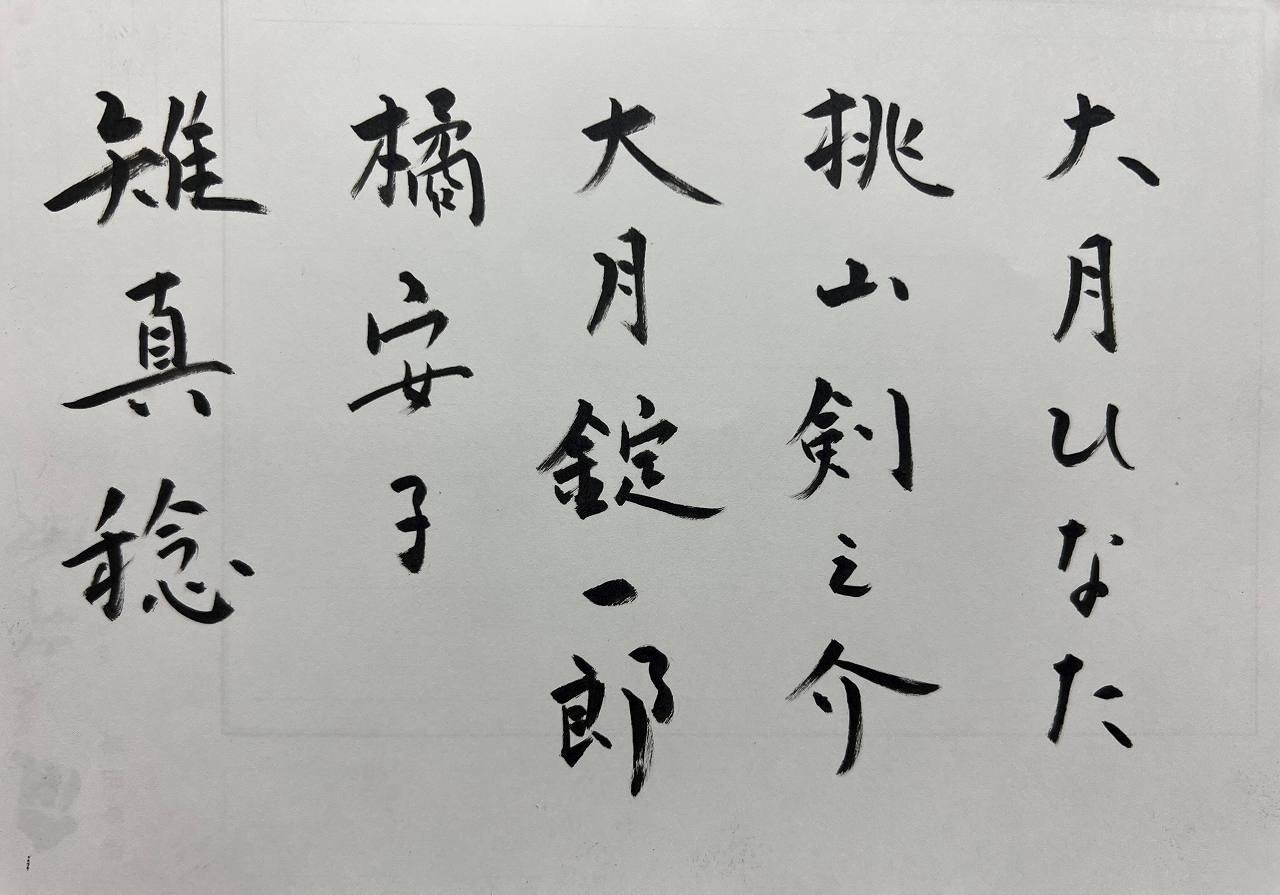 大月ひなた
桃山剣之介
大月錠一郎
橘安子
雉真稔